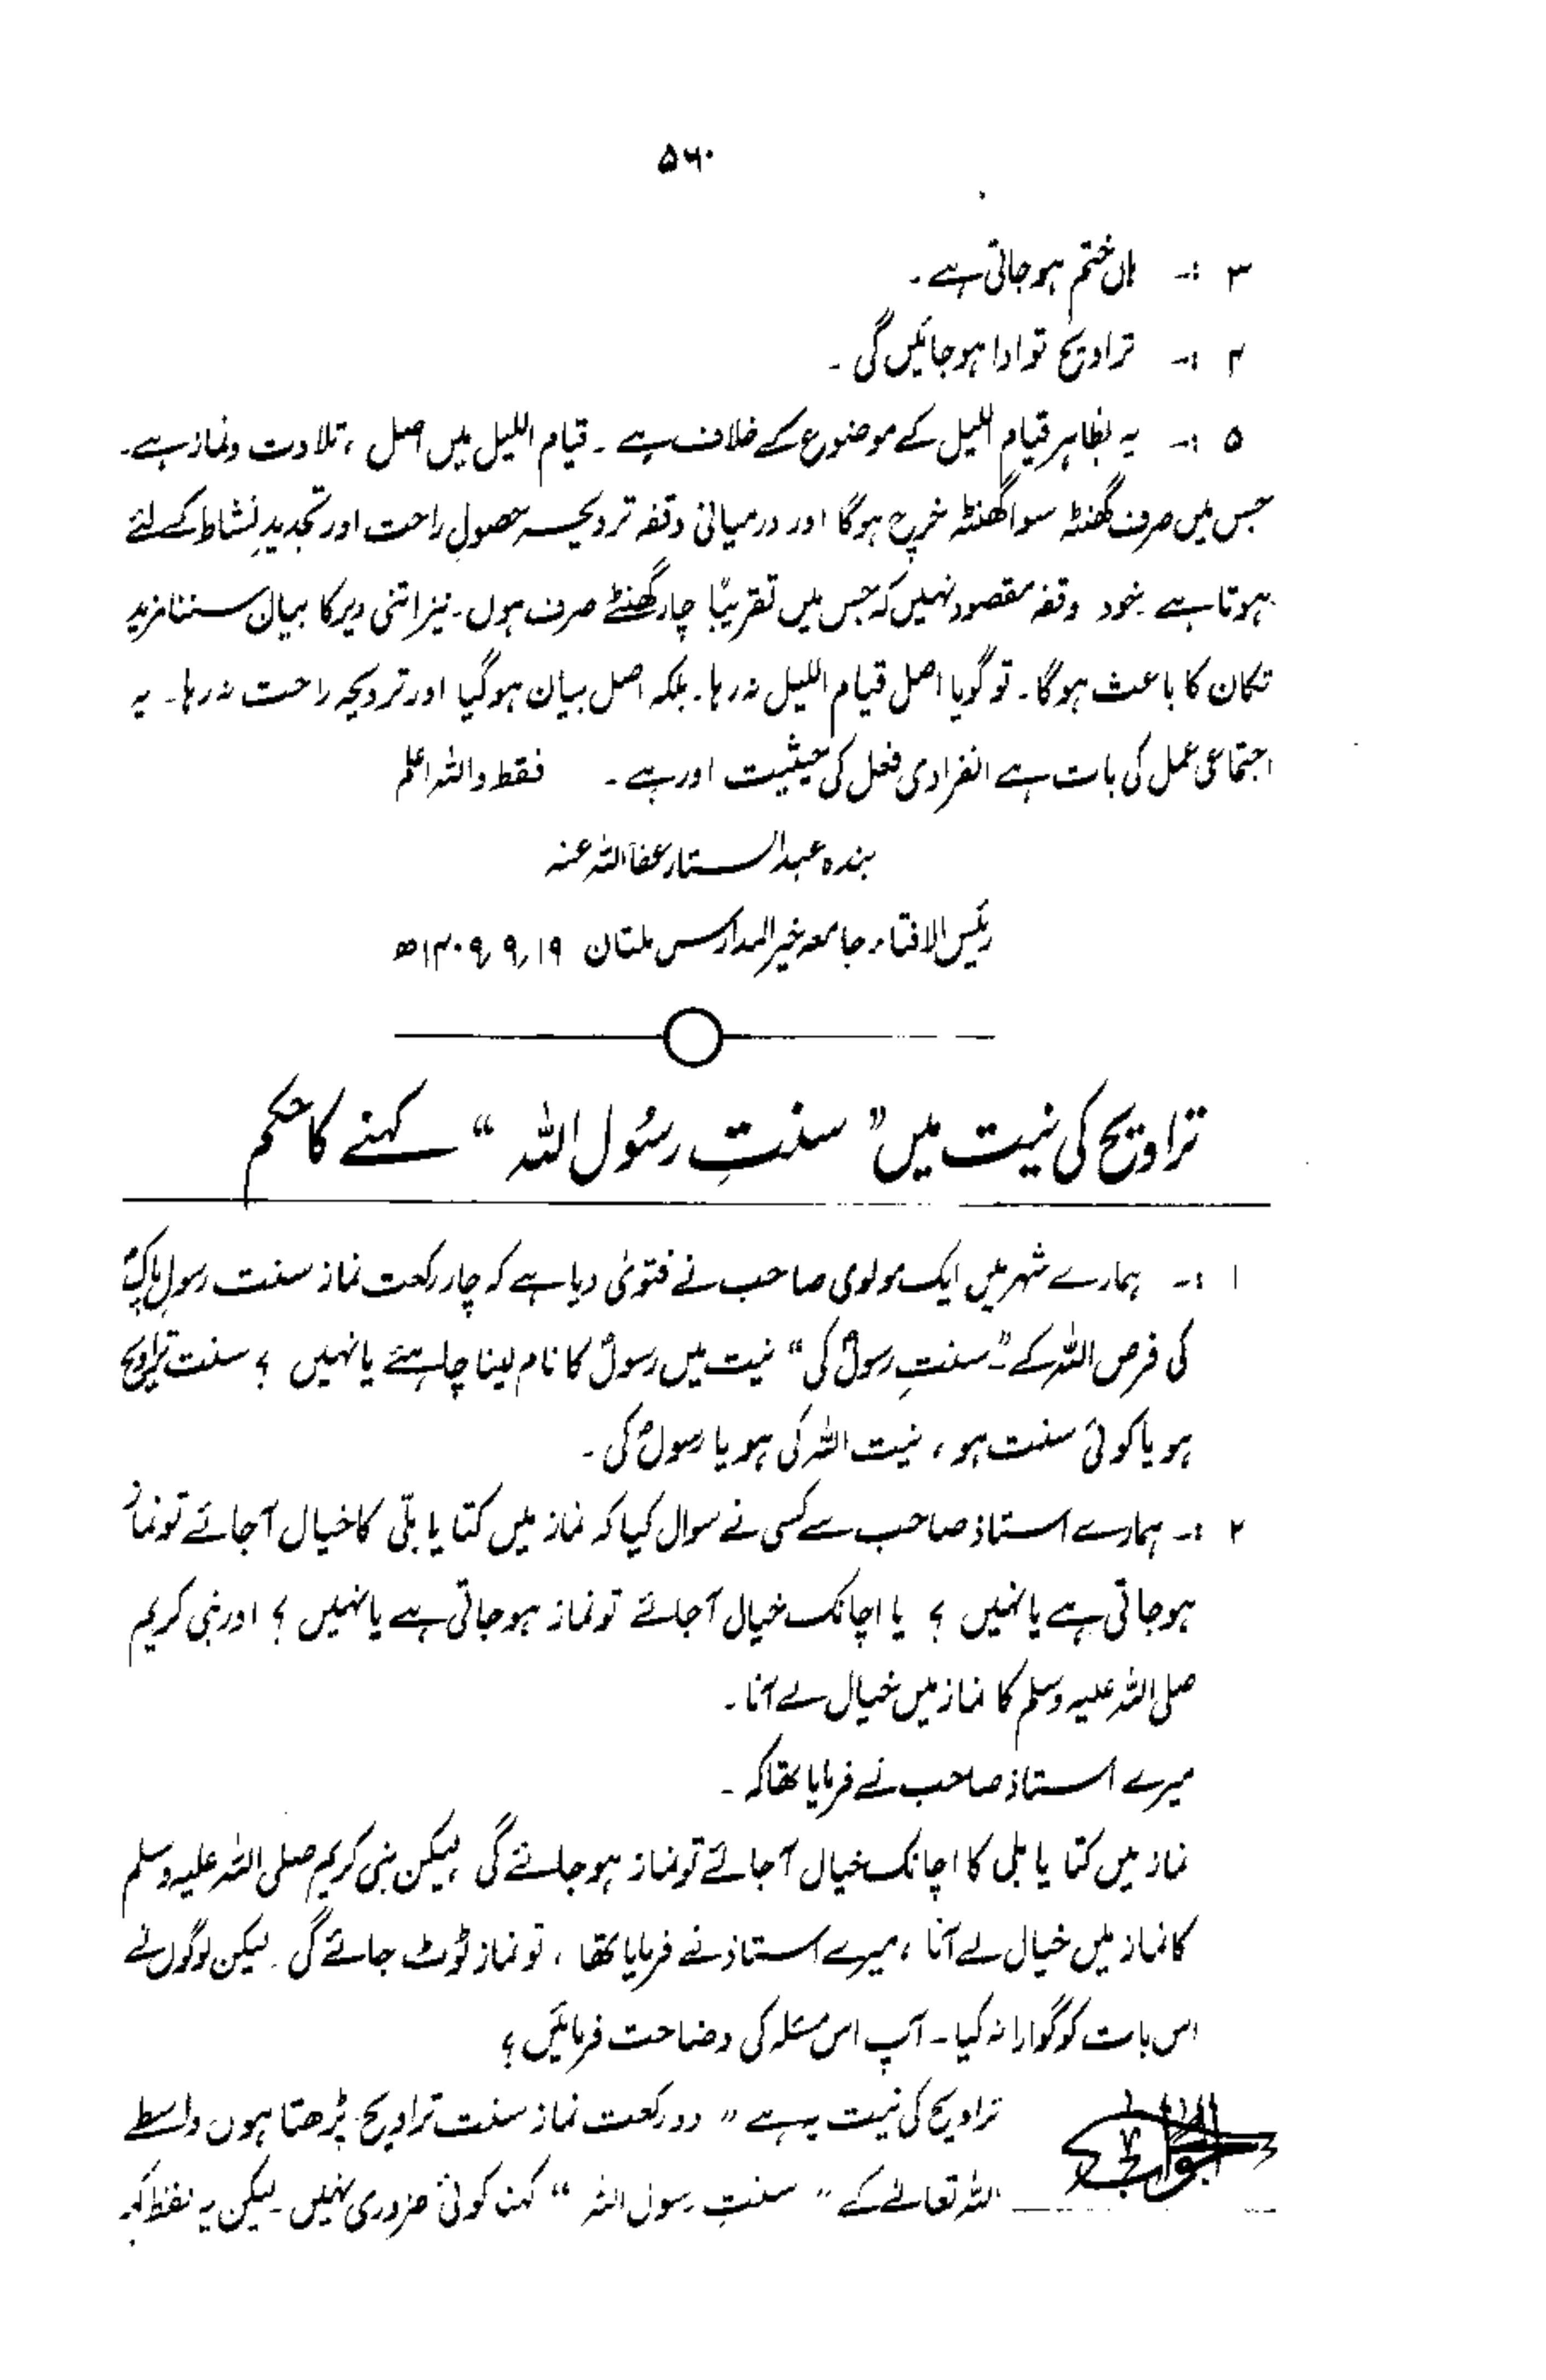 ۵۶۰
۳ :- ہاں ختم ہو جاتی ہے۔
۴ :- تراویح تو ادا ہو جائیں گی۔
۵ :- یہ بظاہر قیام اللیل کے موضوع کے خلاف ہے۔ قیام اللیل میں اصل ، تلاوت و نماز ہے۔
جس میں صرف گھنٹہ سوا گھنٹہ خرچ ہوگا اور درمیانی وقفہ ترویحہ حصولِ راحت اور تجدیدِ نشاط کے لئے
ہوتا ہے خود وقفہ مقصود نہیں کہ جس میں تقریبًا چار گھنٹے صرف ہوں۔ نیز اتنی دیر کا بیان سننا مزید
تکان کا باعث ہوگا۔ تو گویا اصل قیام اللیل نہ رہا۔ بلکہ اصل بیان ہو گیا اور ترویحہ راحت نہ رہا۔ یہ
اجتماعی عمل کی بات ہے انفرادی فعل کی حیثیت اور ہے۔ فقط واللہ اعلم
بندہ عبدالستار عفا اللہ عنہ
رئیس الافتاء جامعہ خیر المدارس ملتان ۱۹؍۹؍۱۴۰۹ھ
تراویح کی نیت میں "سنتِ رسُول اللہ" کہنے کا حکم
۱ :- ہمارے شہر میں ایک مولوی صاحب نے فتویٰ دیا ہے کہ چار رکعت نماز سنت رسولِ پاکؐ
کی فرص اللہ کے "سنتِ رسولؐ کی" نیت میں رسولؐ کا نام لینا چاہئے یا نہیں ؟ سنت تراویح
ہو یا کوئی سنت ہو ، نیت اللہ کی ہو یا رسولؐ کی۔
۲ :- ہمارے استاذ صاحب سے کسی نے سوال کیا کہ نماز میں کتا یا بلّی کا خیال آجائے تو نماز
ہو جاتی ہے یا نہیں ؟ یا اچانک خیال آجائے تو نماز ہو جاتی ہے یا نہیں ؟ اور نبی کریم
صلی اللہ علیہ وسلم کا نماز میں خیال لے آنا۔
میرے استاذ صاحب نے فرمایا تھا کہ۔
نماز میں کتا یا بلی کا اچانک خیال آجائے تو نماز ہو جائے گی لیکن نبی کریم صلی اللہ علیہ وسلم
کا نماز میں خیال لے آنا ، میرے استاذ نے فرمایا تھا ، تو نماز ٹوٹ جائے گی۔ لیکن لوگوں نے
اس بات کو گوارا نہ کیا۔ آپ اس مسئلہ کی وضاحت فرمائیں ؟
الجواب تراویح کی نیت یہ ہے "دو رکعت نماز سنت تراویح پڑھتا ہوں واسطے
اللہ تعالٰے کے" سنتِ رسول اللہ" کہنا کوئی ضروری نہیں۔ لیکن یہ لفظ کہ